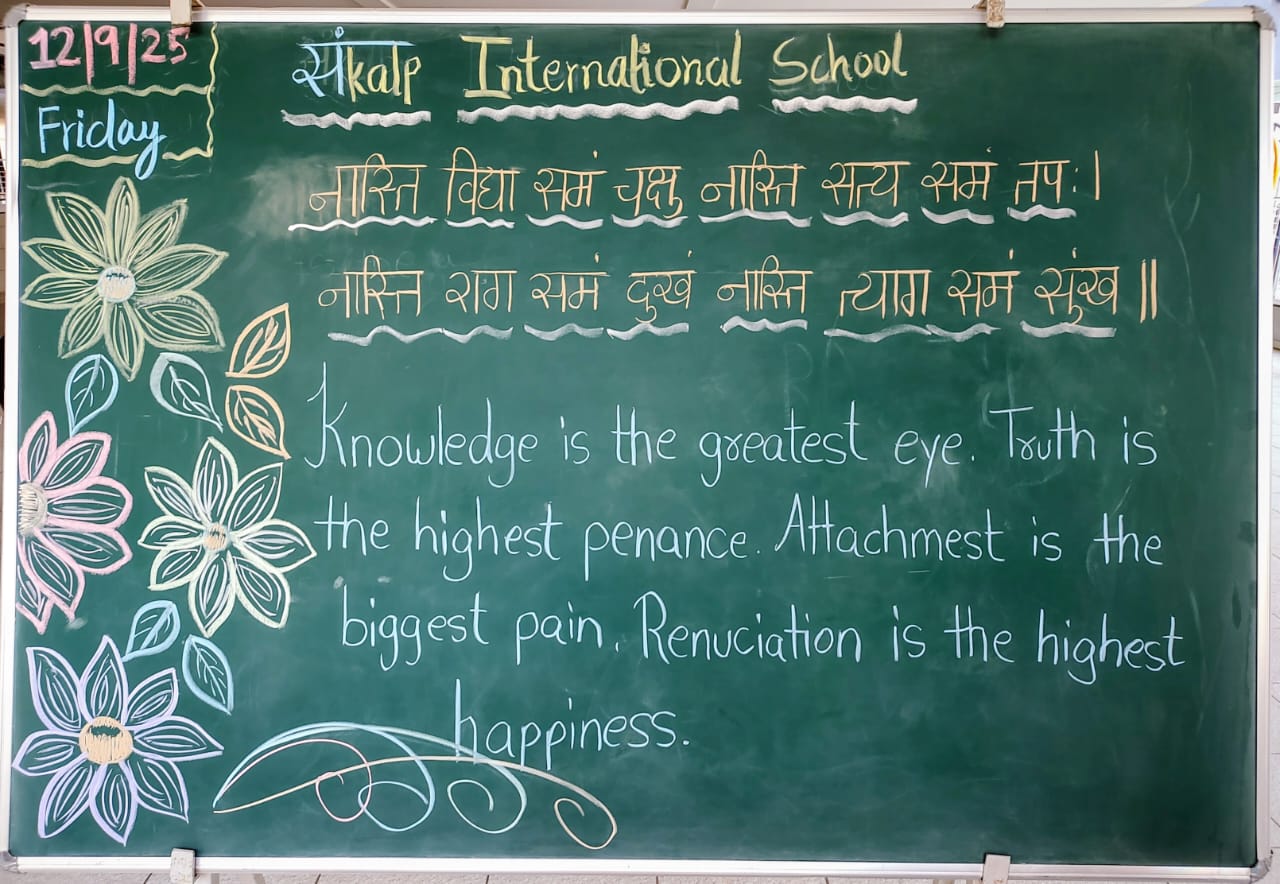 12|9|25
Friday
संkalp International School
नास्ति विद्या समं चक्षु नास्ति सत्य समं तपः।
नास्ति राग समं दुखं नास्ति त्याग समं सुंख॥
Knowledge is the greatest eye. Truth is
the highest penance. Attachmest is the
biggest pain. Renuciation is the highest
happiness.